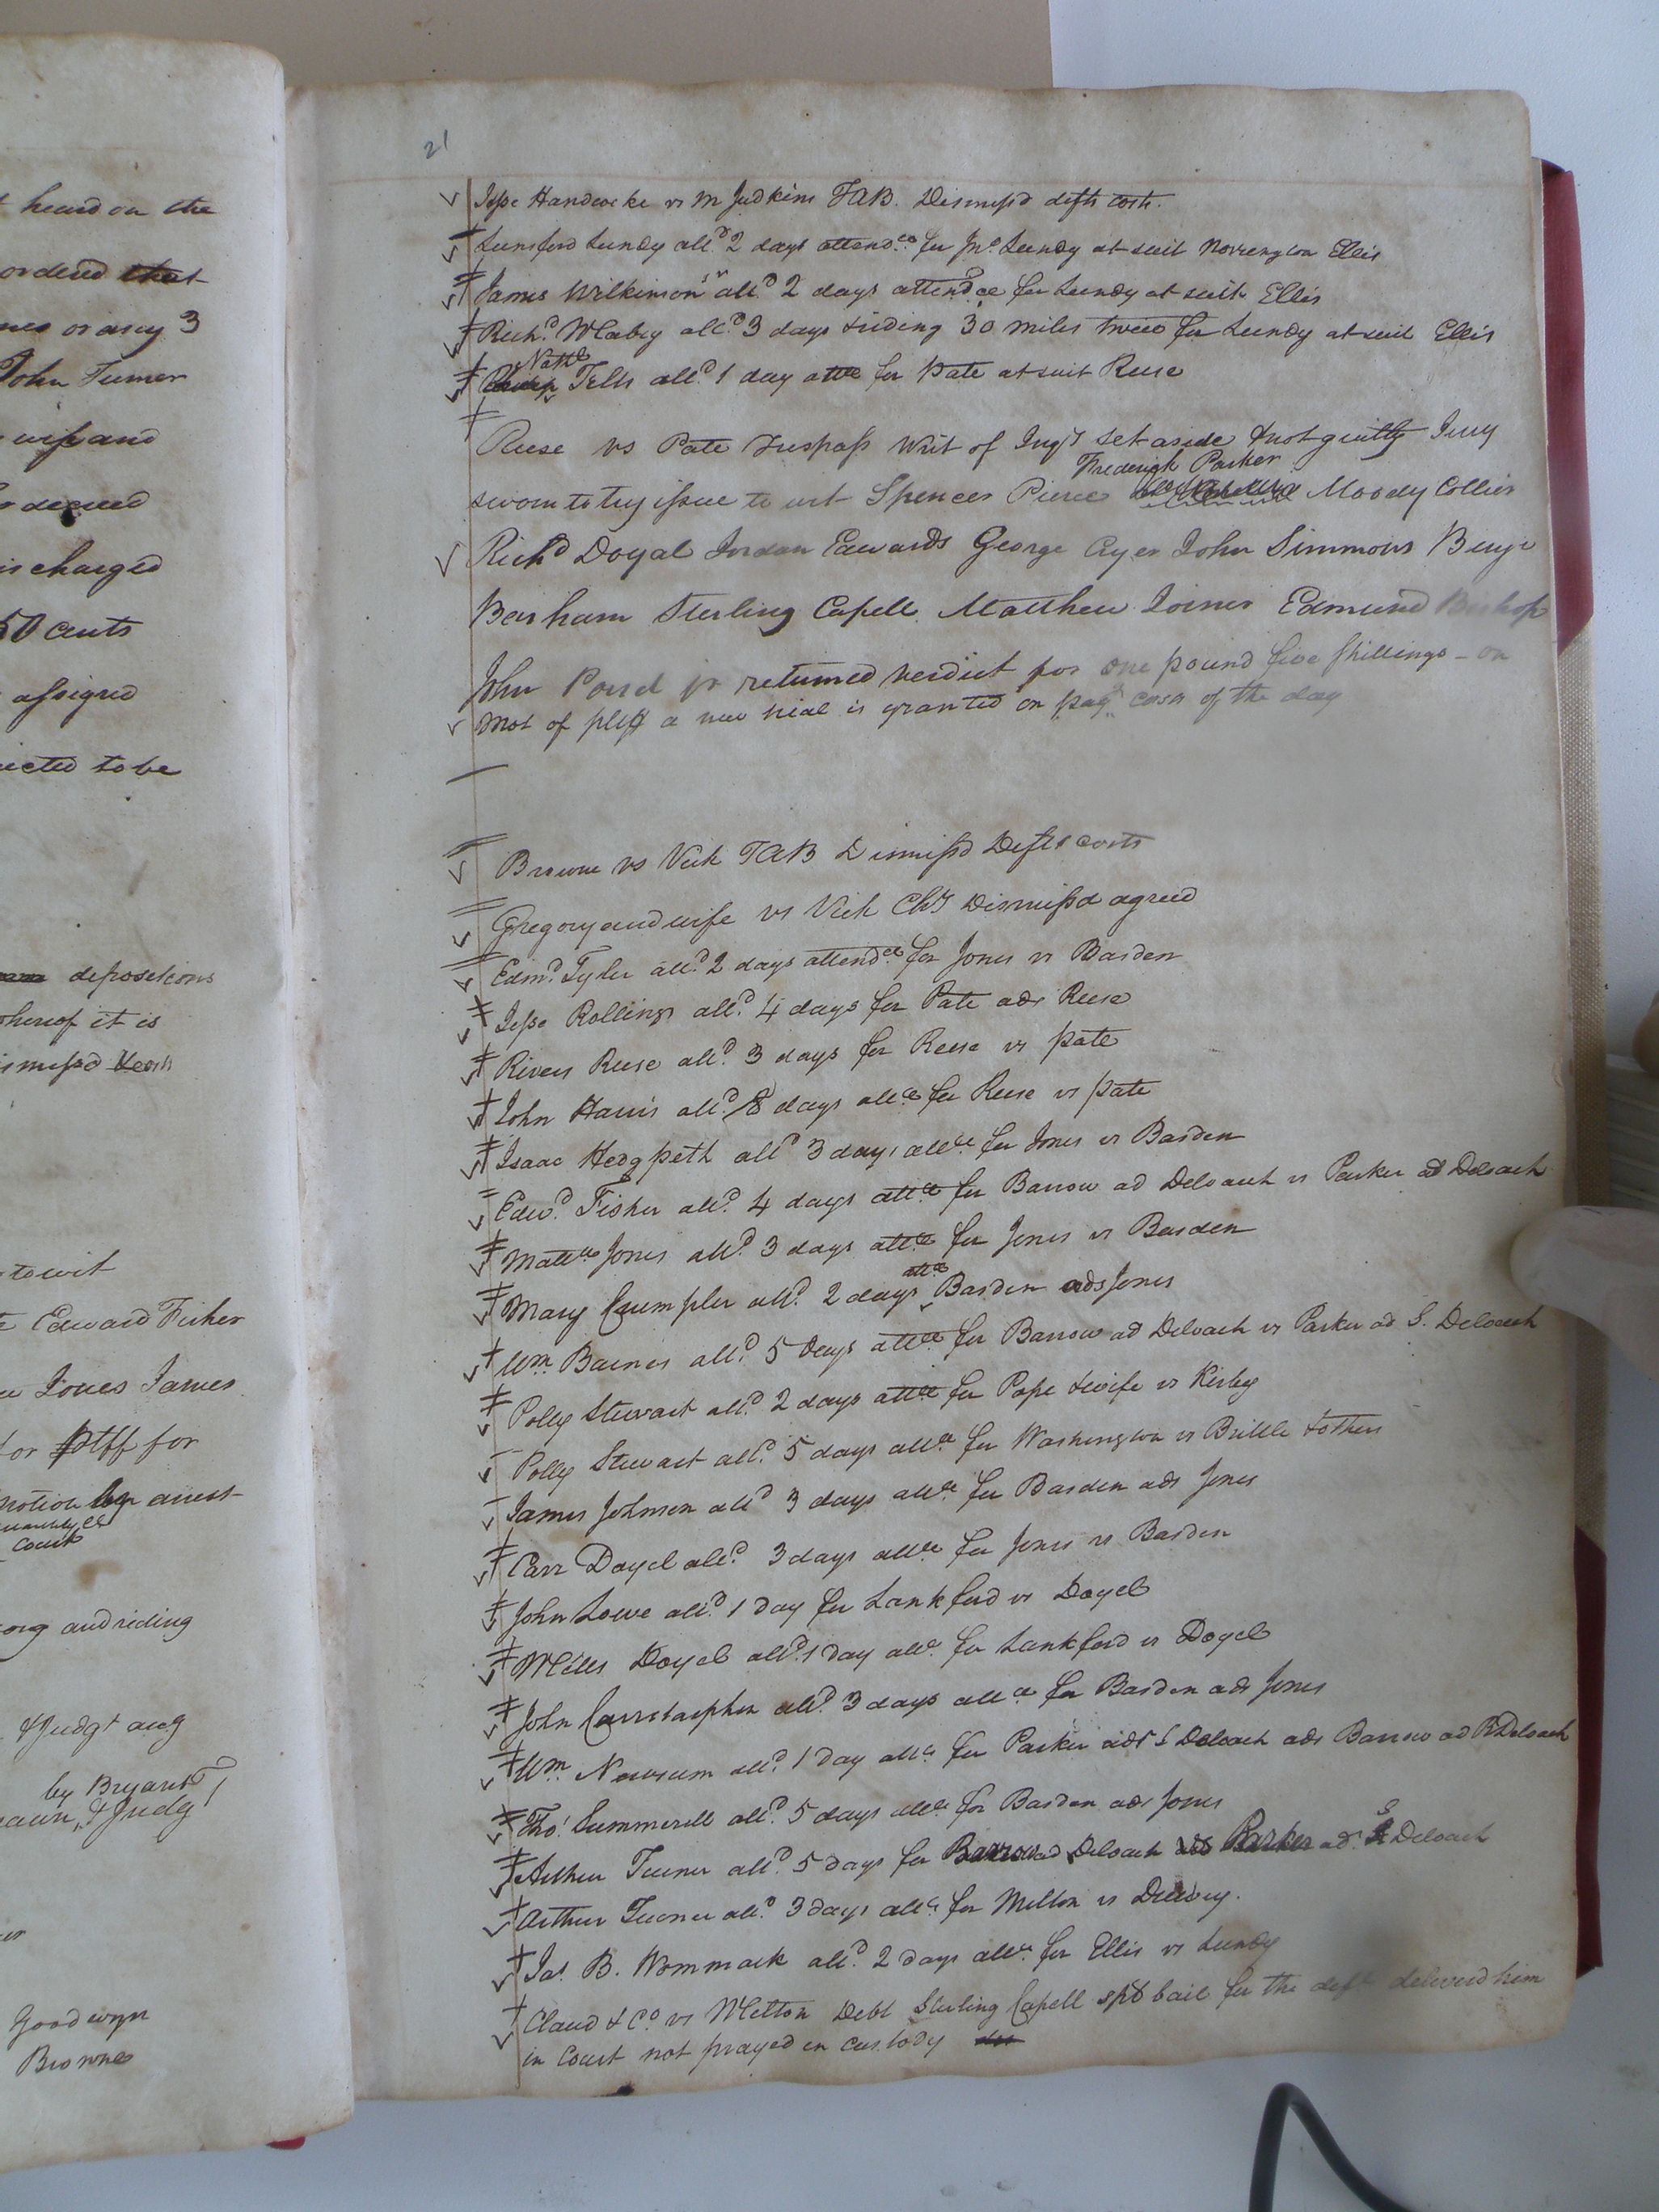 t heard on the
ordered that
nes or any 3
John Turner
wife and
decreed
ischarged
50 cents
assigned
ected to be
depositions
whereof it is
ismissd
to wit
Edward Fisher
Jones James
for Ptff for
motion arrest
Court
ong and riding
& Judgt acg
by Bryant
& Judgt
Goodwyn
Browne
21
Jesse Handcocke vs M Judkins TAB. Dismissd defts costs.
Lunsford Lundy alld 2 days attendce for Jno Lundy at suit Norrengton Ellis
James Wilkinson sr alld 2 days attendce for Lundy at suit Ellis
Richd Mabry alld 3 days & riding 30 miles twice for Lundy at suit Ellis
Nathl
Tells alld 1 day atte for Pate at suit Reese
Reese vs Pate Trespass Writ of Inqy set aside & not guilty Jury
Frederick Parker
sworn to try issue to wit Spencer Pierce Moody Collier
Richd Doyal Jordan Edwards George Ayer John Simmons Benja
Barham Sterling Capell Matthew Joiner Edmund Bishop
John Pond jr returned verdict for one pound five shillings - on
Mot of pltff a new trial is granted on payt costs of the day
Browne vs Vick TAB Dismissd Defts costs
Gregory and wife vs Vick Dismissd agreed
Edmd Tyler alld 2 days attendce for Jones vs Barden
Jesse Rollings alld 4 days for Pate ads Reese
Rivers Reese alld 3 days for Reese vs Pate
John Harris alld 8 days attce for Reese vs Pate
Isaac Hedgpeth alld 3 days attce for Jones vs Barden
Edwd Fisher alld 4 days attce for Barrow ad Deloach vs Parker ad Deloach
Mattw Jones alld 3 days attce for Jones vs Barden
attce
Mary Crumpler alld 2 days Barden ads Jones
Wm Barnes alld 5 days attce for Barrow ad Deloach vs Parker ad S. Deloach
Polly Stewart alld 2 days attce for Pope & wife vs Kirby
Polly Stewart alld 5 days attce for Washington vs Brittle & others
James Johnson alld 3 days attce for Barden ads Jones
Carr Doyel alld 3 days attce for Jones vs Barden
John Lowe alld 1 day for Lankford vs Doyel
Mills Doyel alld 1 day atte for Lankford vs Doyel
John Carrstarphen alld 3 days attce for Barden ads Jones
Wm Newsum alld 1 day atte for Parker adr S Deloach ads Barrow ad B Deloach
Tho' Summerell alld 5 days attce for Barden ads Jones
Arthur Turner alld 5 days for Barrow ad Deloach vs Parker ad S Deloach
Arthur Turner alld 3 days atte for Melton vs Drewry.
Jas. B. Wommack alld 2 days atte for Ellis vs Lundy
Claud & Co vs Melton Debt Sterling Capell spl bail for the deft deliverd him
in Court not prayed in custody